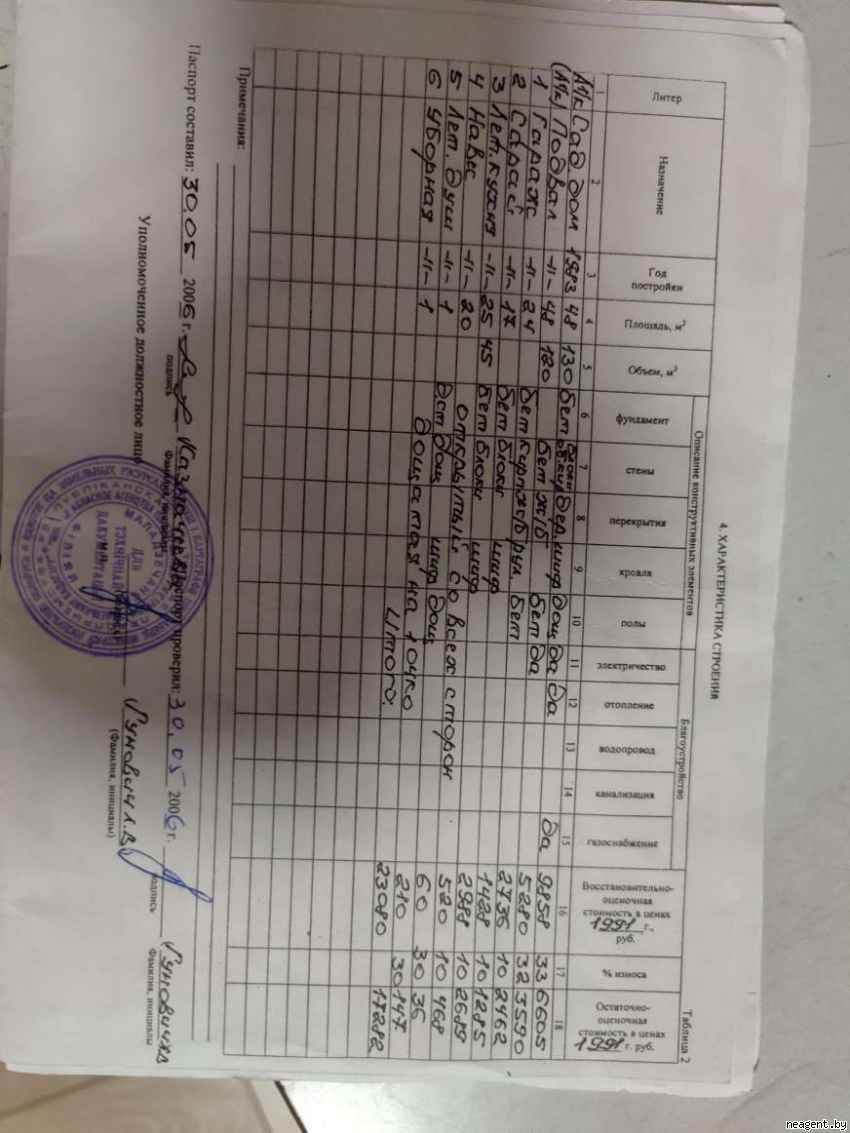 4. ХАРАКТЕРИСТИКА СТРОЕНИЯ
Таблица 2
Литер Назначение Год постройки Площадь, м² Объем, м³ Описание конструктивных элементов Благоустройство Восстановительно-оценочная стоимость в ценах 1991 г., руб. % износа Остаточно-оценочная стоимость в ценах 1991 г. руб.
фундамент стены перекрытия кровля полы электричество отопление водопровод канализация газоснабжение
1 2 3 4 5 6 7 8 9 10 11 12 13 14 15 16 17 18
А1/к Сад. дом 1983 48 130 бет блоки дер. шиф дощ да да да 9858 33 6605
(А1/к) Подвал -//- 48 120 бет ж/б бет да 5280 32 3590
1 Гараж -//- 24 бет кирп ж/б рул. бет 2736 10 2462
2 Сарай -//- 17 бет блоки шиф 1428 10 1285
3 Лет. кухня -//- 25 45 бет блоки шиф 2988 10 2689
4 Навес -//- 20 открытый со всех сторон 520 10 468
5 Лет. душ -//- 1 дощ шиф дощ 60 30 36
6 Уборная -//- 1 дощатая на 1 очко 210 30 147
Итого: 23080 17282
Примечания:
Паспорт составил: 30.05 2006 г. Паспорт проверил: 30.05 2006 г.
подпись Фамилия, инициалы подпись Фамилия, инициалы
Уполномоченное должностное лицо Рунович Л.В
(Фамилия, инициалы)
М.П.
ДЛЯ
neagent.by